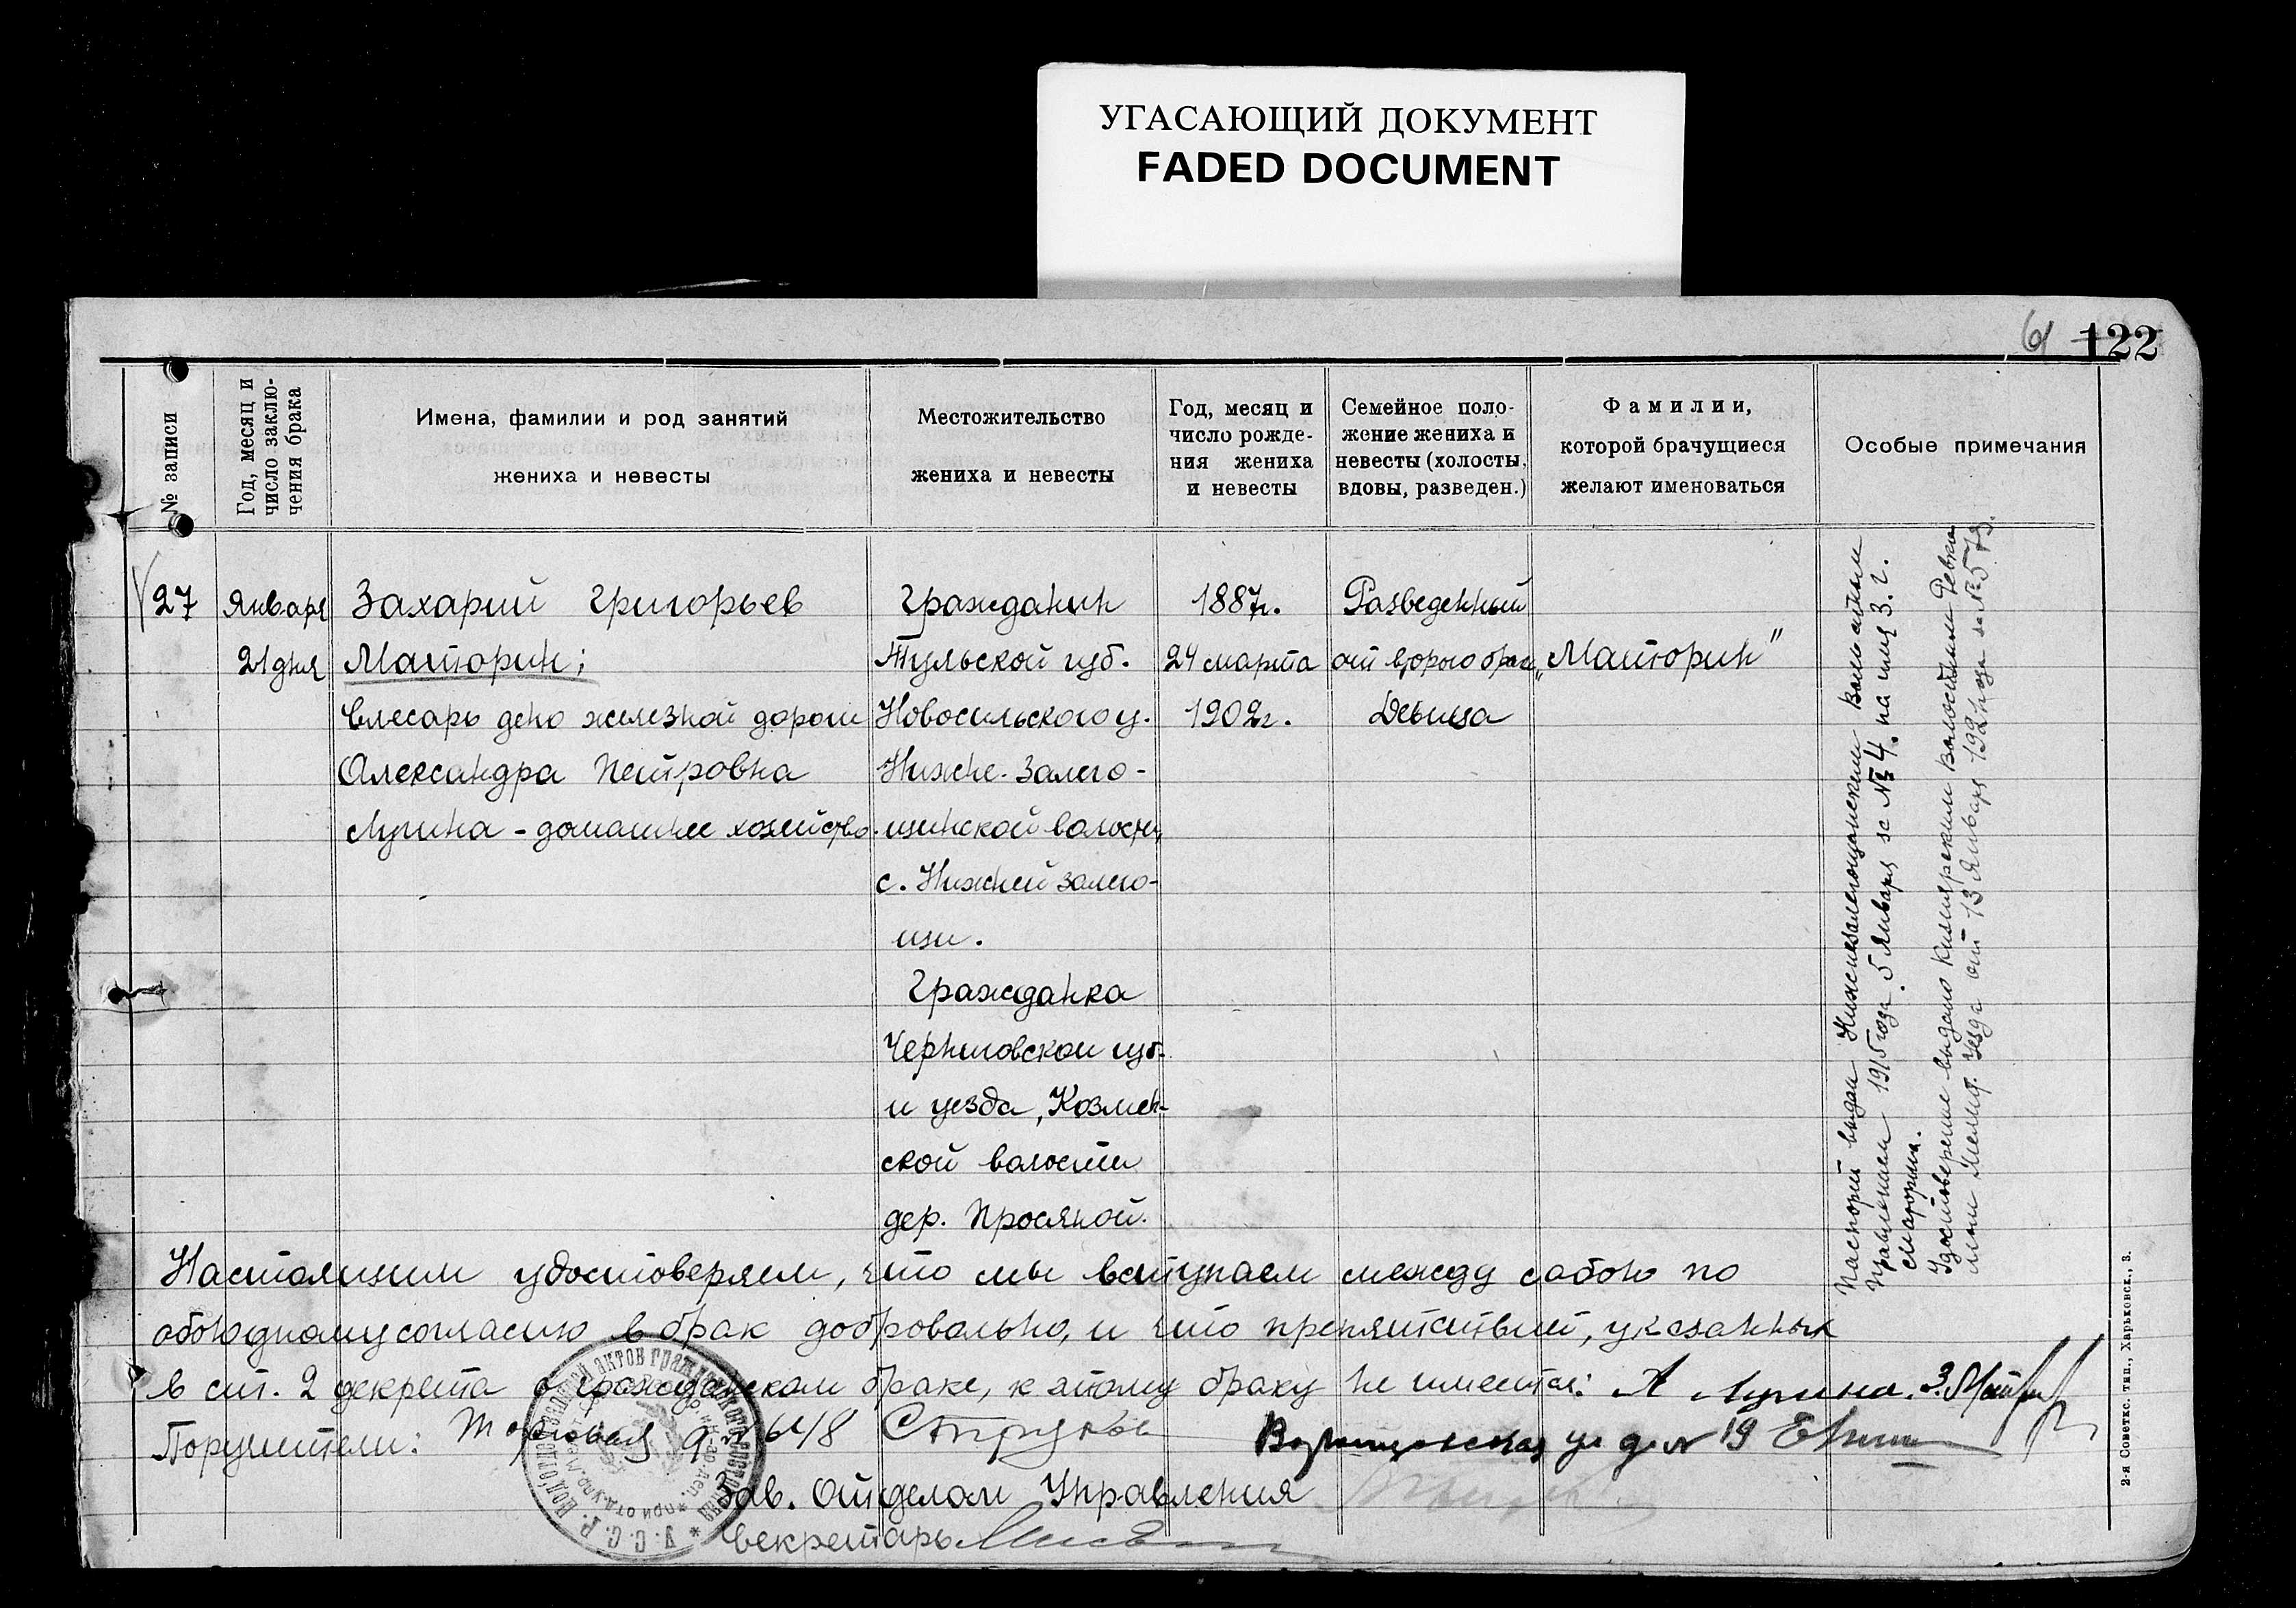 УГАСАЮЩИЙ ДОКУМЕНТ
FADED DOCUMENT
61 122
№ записи
Год, месяц и
число заклю-
чения брака
Имена, фамилии и род занятий
жениха и невесты
Местожительство
жениха и невесты
Год, месяц и
число рожде-
ния жениха
и невесты
Семейное поло-
жение жениха и
невесты (холосты,
вдовы, разведен.)
Фамилии,
которой брачущиеся
желают именоваться
Особые примечания
27
Января
21 дня
Захарий Григорьев
Маторин;
Слесарь депо железной дороги
Александра Петровна
Лугина - домашнее хозяйство.
Гражданин
Тульской губ.
Новосильского у.
Нижне-Залего-
щинской волости,
с. Нижней Залего-
щи.
Гражданка
Черниговской губ.
и уезда, Козлен-
ской волости
дер. Просяной.
1887г.
24 марта
1902г.
Разведенный
от второго брака
Девица
„Маторин"
Паспорт выдан Нижнезалегощенским Волостным
Правлением 1915 года 5 Января за № 4. на имя З. Г.
Маторина.
Удостоверение выдано Волостным Ревко
мом уезда от 13 Января 1922 года за № 573.
Настоящим удостоверяем, что мы вступаем между собою по
обоюдному согласию в брак добровольно, и что препятствий, указанных
в ст. 2 декрета о гражданском браке, к этому браку не имеется: А Лугина. З. Мат
Поручители: Торговая 9 Струков ул д № 19
Зав. Отделом Управления
Секретарь
У.С.С.Р. Подотдел записей актов гражданского состояния
2-я Советск. тип., Харьковск., 3.